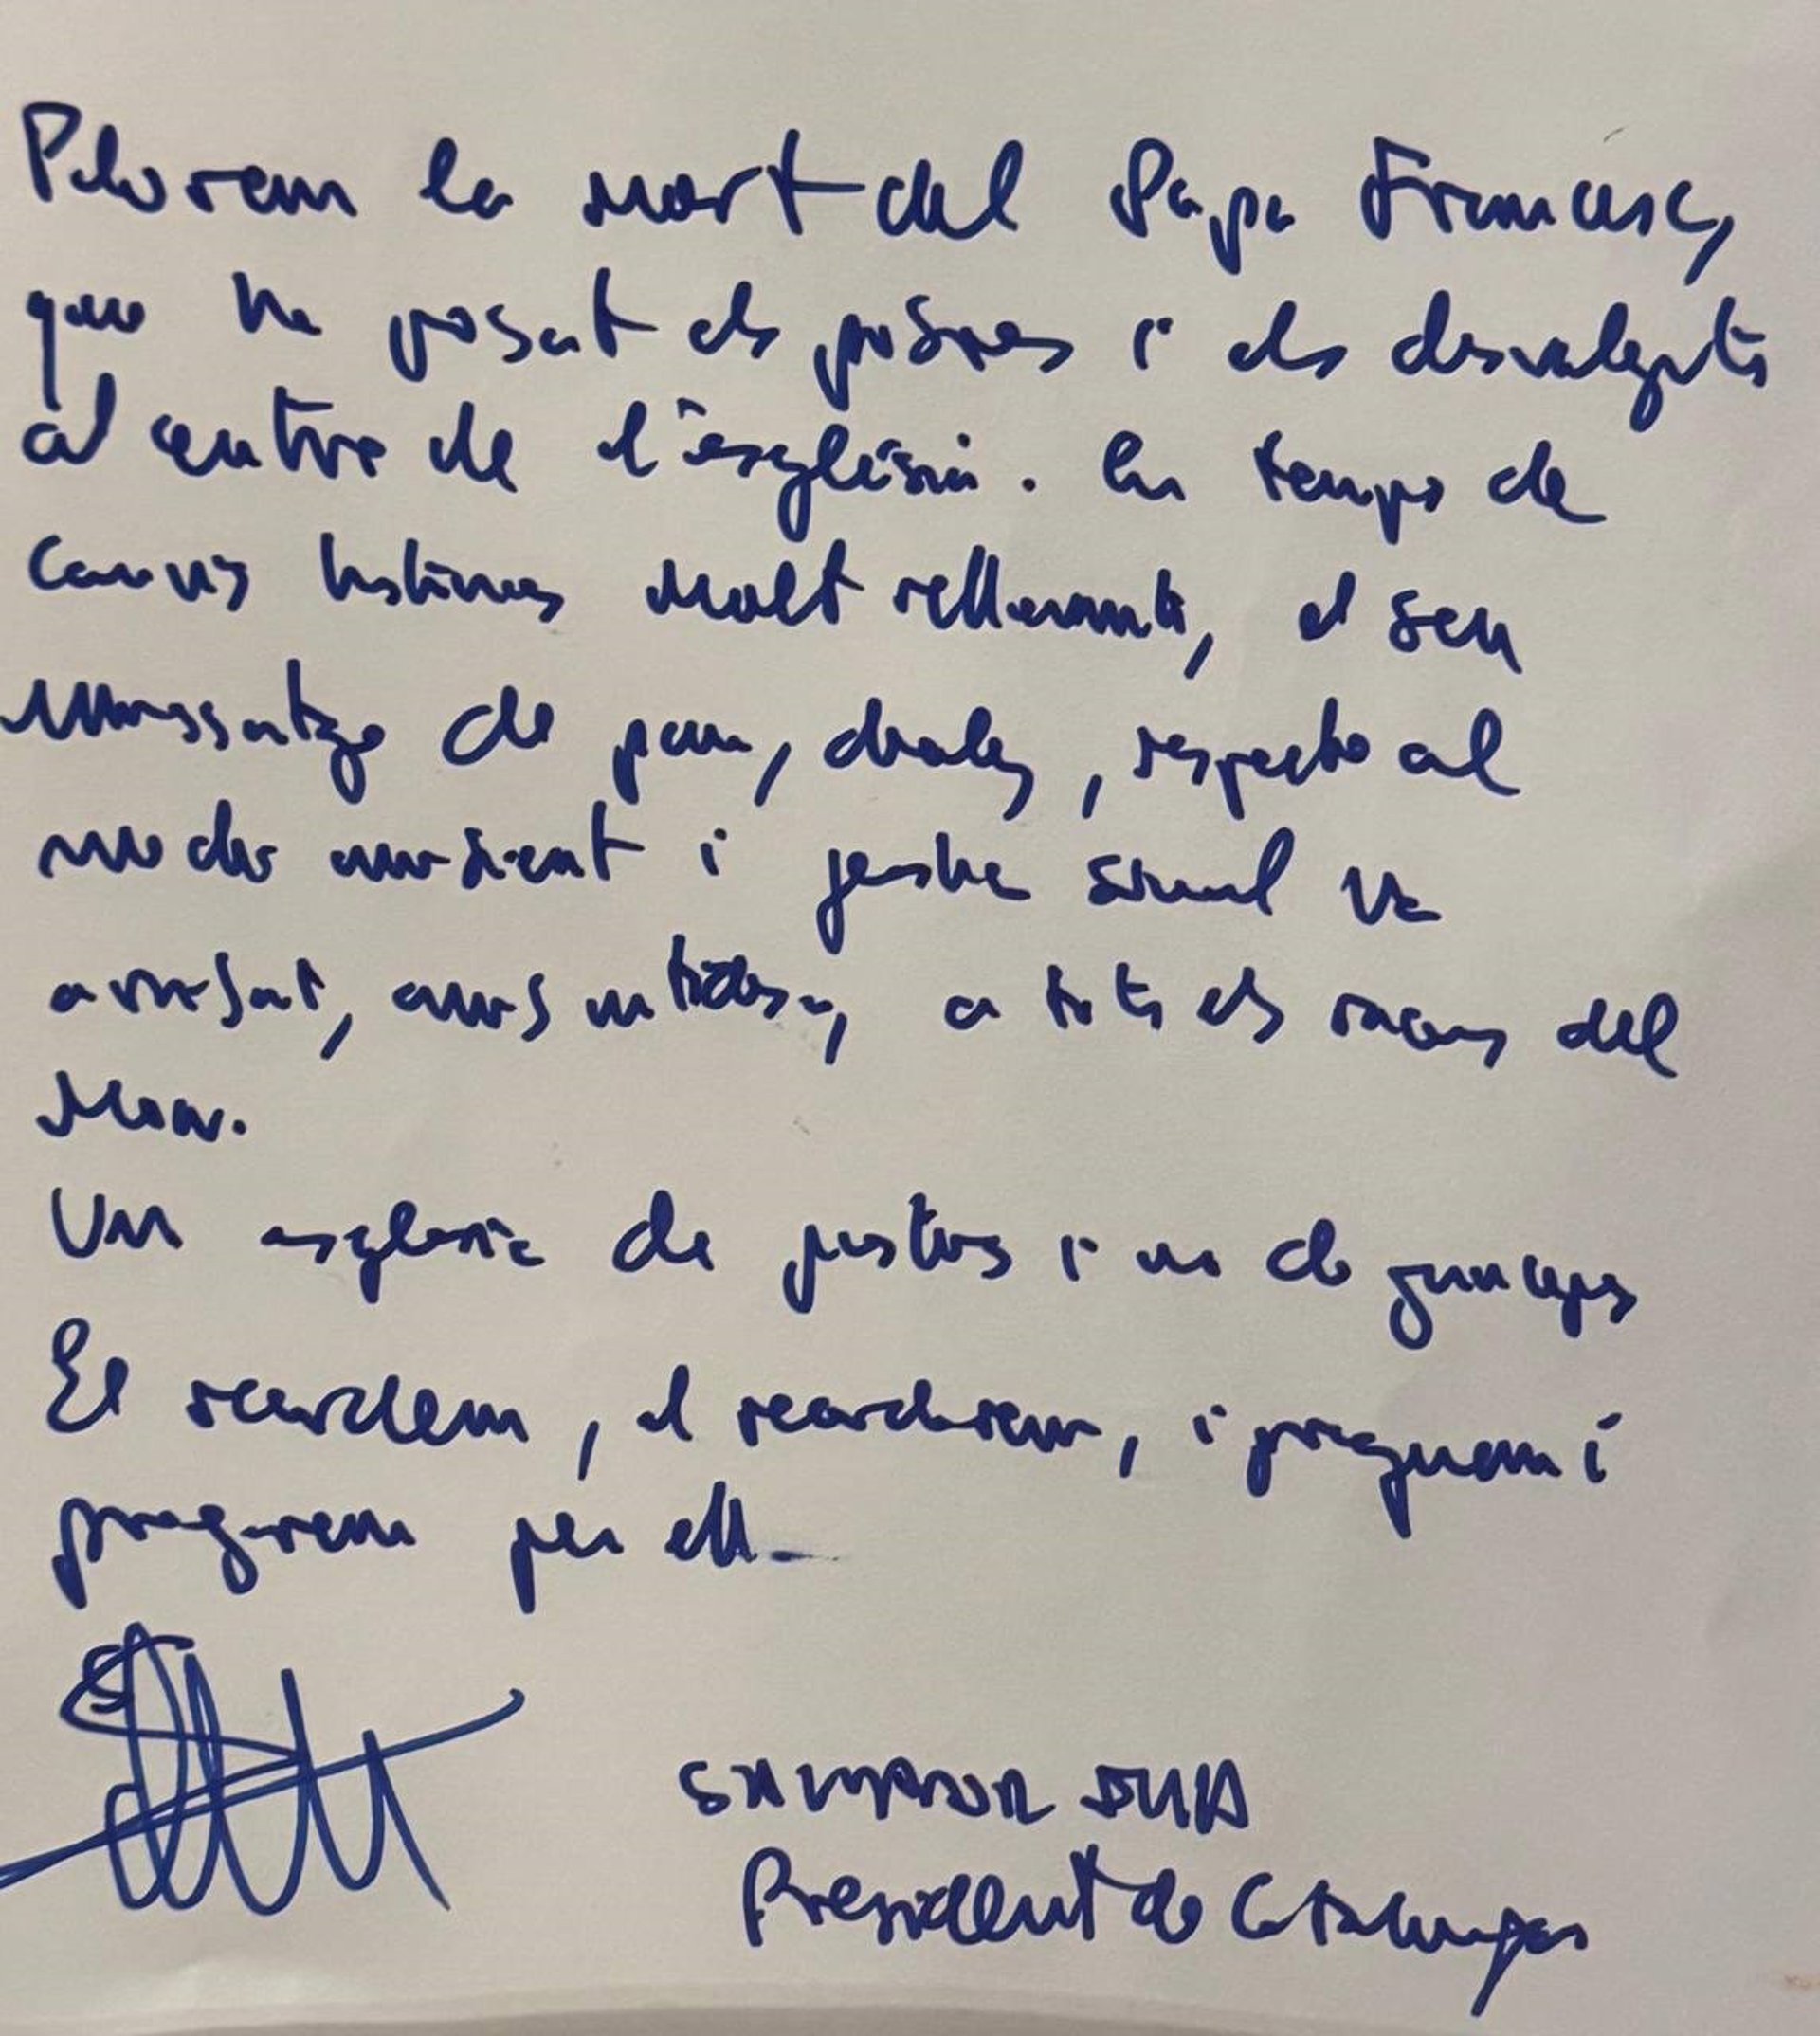 Plorem la mort del Papa Francesc,
que ha posat els pobres i els desvalguts
al centre de l'església. En temps de
canvis històrics molt rellevants, el seu
missatge de pau, diàleg, respecte al
medi ambient i justícia social va
arribar, amb a tots els racons del
món.
Una església de pastors i no de prínceps
El recordem, el recordarem, i preguem i
pregarem per ell.
SALVADOR ILLA
President de Catalunya